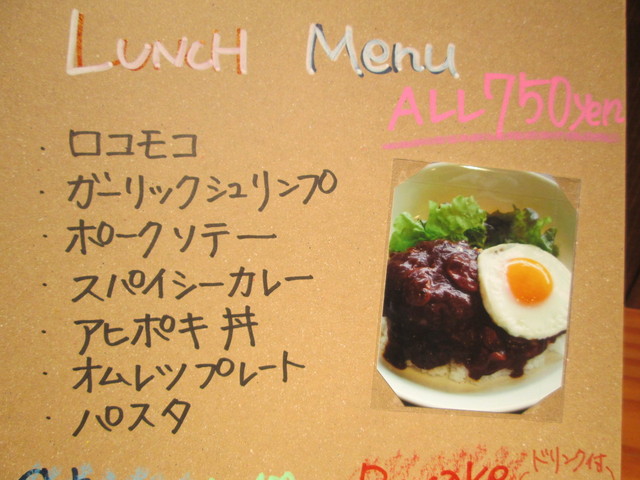 LUNCH Menu
ALL 750yen
・ロコモコ
・ガーリックシュリンプ
・ポークソテー
・スパイシーカレー
・アヒポキ丼
・オムレツプレート
・パスタ
ドリンク付